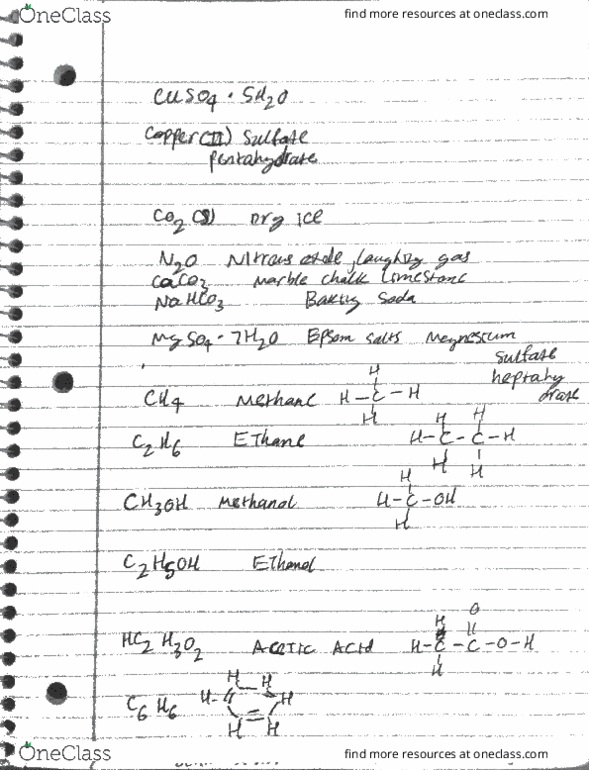 OneClass
find more resources at oneclass.com
CuSO4 · 5H2O
Copper (II) sulfate
pentahydrate
CO2 (s) Dry ice
N2O Nitrous oxide, laughing gas
CaCO3 marble chalk limestone
NaHCO3 Baking Soda
MgSO4 · 7H2O Epsom salts Magnesium
sulfate
heptahy
drate
H
CH4 Methane H-C-H
H
H H
C2H6 Ethane H-C-C-H
H H
H
CH3OH Methanol H-C-OH
H
C2H5OH Ethanol
H O
HC2H3O2 Acetic Acid H-C-C-O-H
H
H H
C6H6 H- H
H H
OneClass
find more resources at oneclass.com